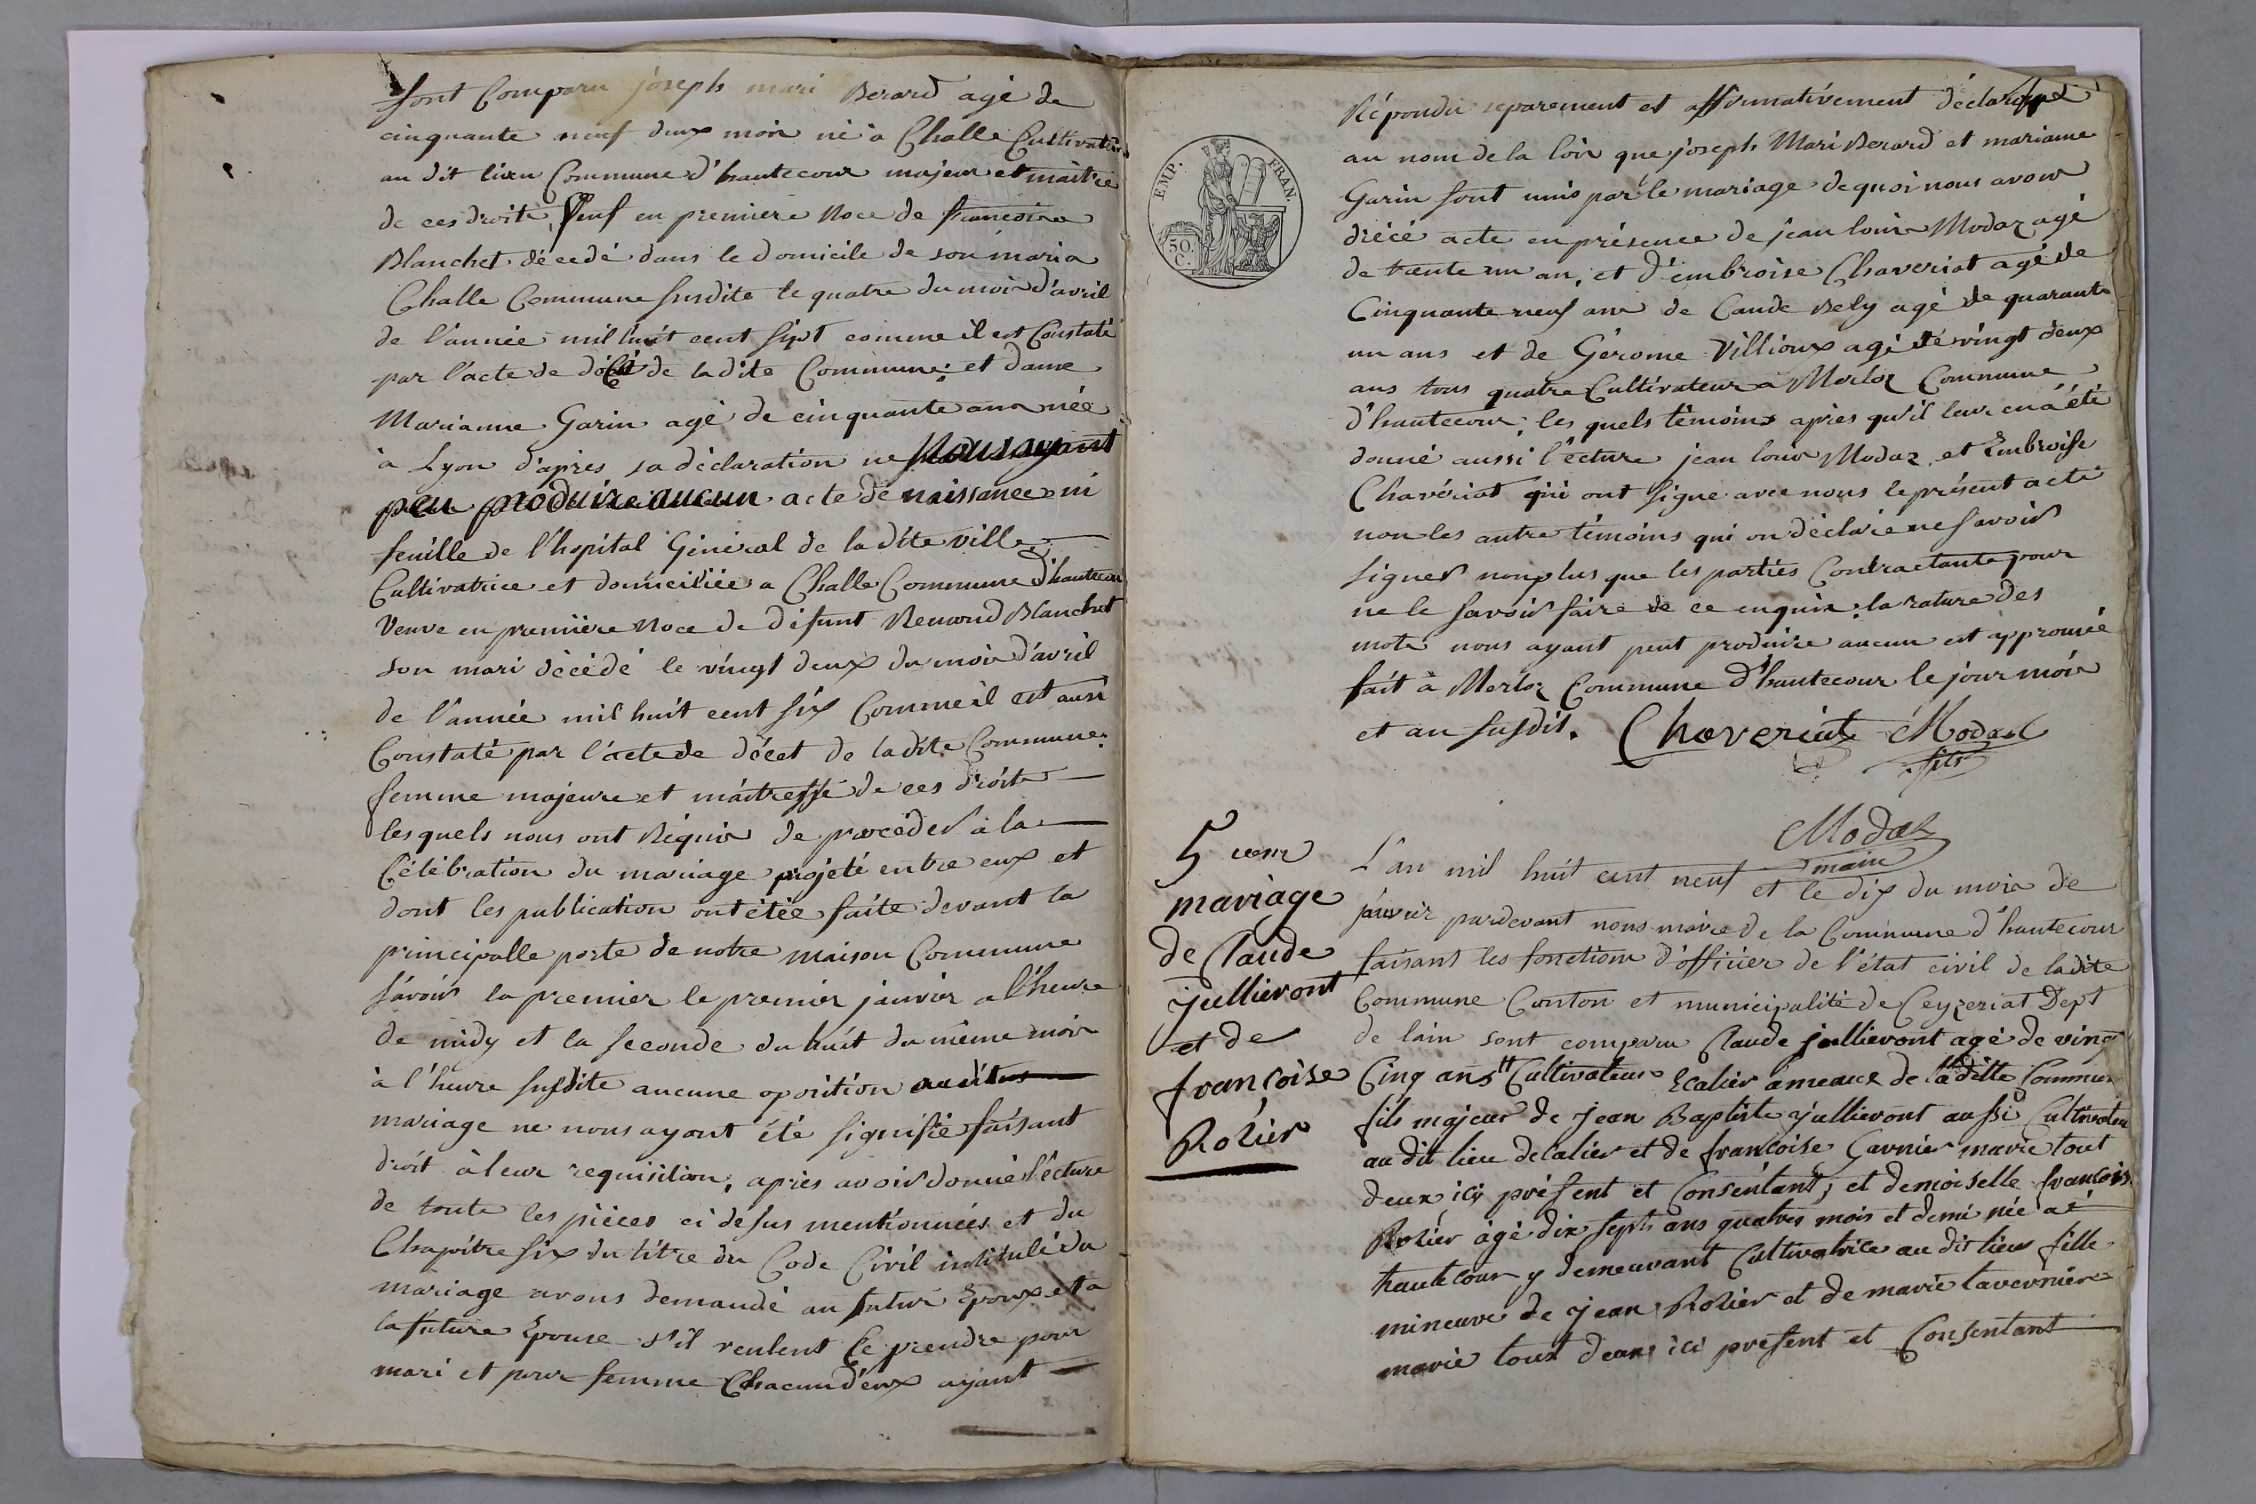 sont Comparu joseph mari Berard agé de
cinquante neuf deux mois né à Challe Cultivateur
au dit lieu Commune d'hautecour majeur et maitre
de ces droits, Veuf en premiere Noce de francoise
Blanchet décedé dans le domicile de son mari a
Challe Commune susdite le quatre du mois d'avril
de l'année mil huit cent sept comme il est Constaté
par l'acte de décé de la dite Commune; et dame
Marianne Garin agé de cinquante ans née
à Lyon d'apres sa déclaration ne Nous ayant
peu produire aucun acte de naissance ni
feuille de l'hopital Général de la dite ville
Cultivatrice et domiciliée a Challe Commune d'hautecour
Veuve en premiere Noce de défunt Renaud Blanchet
son mari décédé le vingt deux du mois d'avril
de l'année mil huit cent six Comme il est aussi
Constaté par l'acte de décet de la dite Commune.
femme majeure et maitresse de ces droits
les quels nous ont Réquis de proceder à la
Célébration du mariage projété entre eux et
dont les publication ont étée faite devant la
principalle porte de notre maison Commune
savoir la premier le premier janvier a l'heure
de midy et la seconde du huit du même mois
à l'heure susdite aucune oposition audit
mariage ne nous ayant été signifié faisant
droit à leur requisition, après avoir donné lécture
de toute les pièces ci desus mentionnées et du
Chapitre six du titre du Code Civil intitulé du
mariage avons demandé au futur Epoux et a
la future Epouse s'il veulent se prendre pour
mari et pour femme Chacun d'eux ayant
EMP. FRAN.
50 C.
Répondu separement et affirmativement déclarons
au nom de la loix que joseph Mari Berard et marianne
Garin sont unis par le mariage de quoi nous avons
drécé acte en présence de jean louis Modaz agé
de trente un an, et d'embroise Chaveriat agé de
Cinquante neuf ans de Caude Bely agé de quarante
un ans et de Gérome Villioux agé de vingt deux
ans tous quatre Cultivateur a Merloz Commune
d'hautecour; les quels témoins apres qu'il leur en a été
donné aussi l'écture jean louis Modaz et Embroise
Chavériat qui ont signe avec nous le présent acte
non les autre témoins qui on déclaré ne savoir
signer nonplus que les parties Contractante pour
ne le savoir faire de ce enquis; la rature des
mots nous ayant peut produire aucun est approuée
fait à Merloz Commune d'hautecour le jour mois
et an susdit. Chaveriat Modaz
fils
Modaz
maire
5 eme
mariage
de Claude
jullieront
et de
francoise
Rolier
L'an mil huit cent neuf et le dix du mois de
janvier pardevant nous maire de la Commune d'hautecour
faisant les fonctions d'officier de l'état civil de ladite
Commune Canton et municipalité de Ceyzeriat Dept
de lain sont comparu Claude jullieront agé de vingt
Cinq ans Cultivateur Ecalier ameaux de la ditte Commune
fils majeur de jean Baptiste jullieront aussi Cultivateur
au dit lieu de calier et de francoise Garnier marié tout
deux icy présent et Consentant; et demoiselle francoise
Rolier agé dix sept ans quatres mois et demi née a
hautecour y demeurant Cultivatrice au dit lieu fille
mineure de jean Rolier et de marie tavernier
marié tout deux ici présent et Consentant